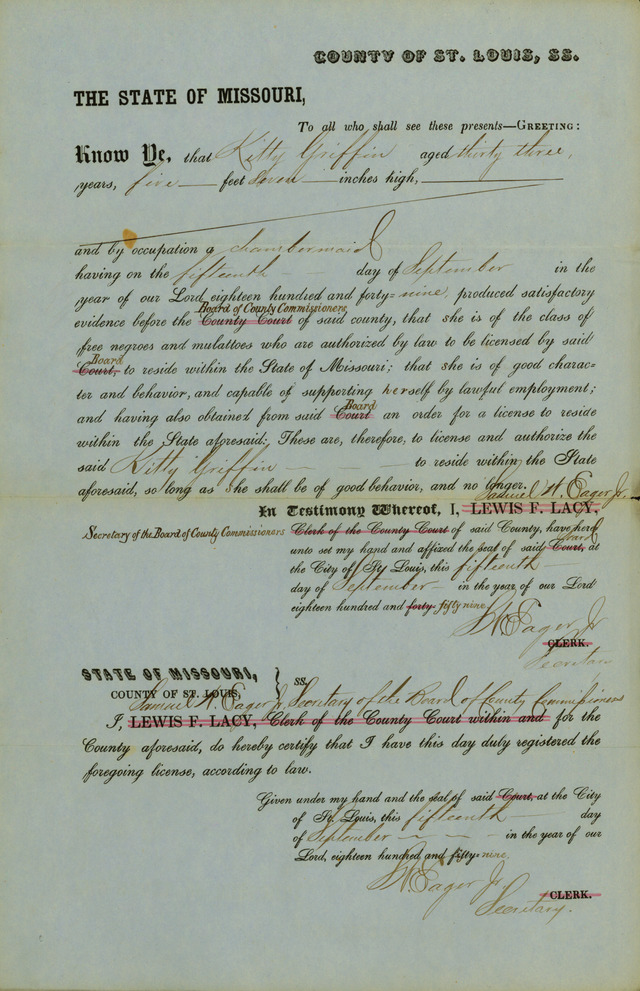 COUNTY OF ST. LOUIS, SS.
THE STATE OF MISSOURI,
To all who shall see these presents—GREETING:
Know Ye, that Kitty Griffin aged thirty three,
years, five feet seven inches high,
and by occupation a chambermaid
having on the fifteenth day of September in the
year of our Lord eighteen hundred and forty-nine, produced satisfactory
Board of County Commissioners,
evidence before the County Court of said county, that she is of the class of
free negroes and mulattoes who are authorized by law to be licensed by said
Board
Court, to reside within the State of Missouri; that she is of good charac-
ter and behavior, and capable of supporting herself by lawful employment;
Board
and having also obtained from said Court an order for a license to reside
within the State aforesaid: These are, therefore, to license and authorize the
said Kitty Griffin to reside within the State
aforesaid, so long as she shall be of good behavior, and no longer.
Samuel H. Eager Jr.
In Testimony Whereof, I, LEWIS F. LACY,
Secretary of the Board of County Commissioners Clerk of the County Court of said County, have here-
Board
unto set my hand and affixed the seal of said Court, at
the City of St. Louis, this fifteenth
day of September in the year of our Lord
eighteen hundred and forty- fifty nine.
S. H. Eager Jr
CLERK.
Secretary
STATE OF MISSOURI,
COUNTY OF ST. LOUIS, } ss.
Samuel H. Eager Jr. Secretary of the Board of County Commissioners
I, LEWIS F. LACY, Clerk of the County Court within and for the
County aforesaid, do hereby certify that I have this day duly registered the
foregoing license, according to law.
Given under my hand and the seal of said Court, at the City
of St. Louis, this fifteenth day
of September in the year of our
Lord, eighteen hundred and fifty-nine.
S. H. Eager Jr
CLERK.
Secretary.